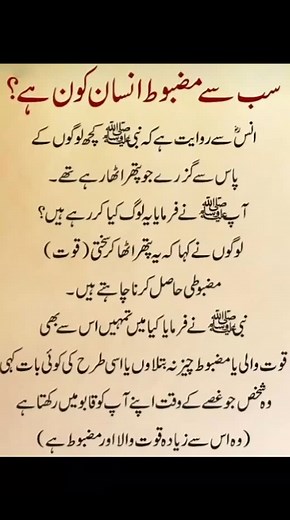 سب سے مضبوط انسان کون ہے؟
انسؓ سے روایت ہے کہ نبی ﷺ کچھ لوگوں کے
پاس سے گزرے جو پتھر اٹھا رہے تھے۔
آپ ﷺ نے فرمایا یہ لوگ کیا کر رہے ہیں؟
لوگوں نے کہا کہ یہ پتھر اٹھا کر سختی (قوت)
مضبوطی حاصل کرنا چاہتے ہیں۔
نبی ﷺ نے فرمایا کیا میں تمہیں اس سے بھی
قوت والی یا مضبوط چیز نہ بتلاوں یا اسی طرح کی کوئی بات کہی
وہ شخص جو غصے کے وقت اپنے آپ کو قابو میں رکھتا ہے
(وہ اس سے زیادہ قوت والا اور مضبوط ہے)